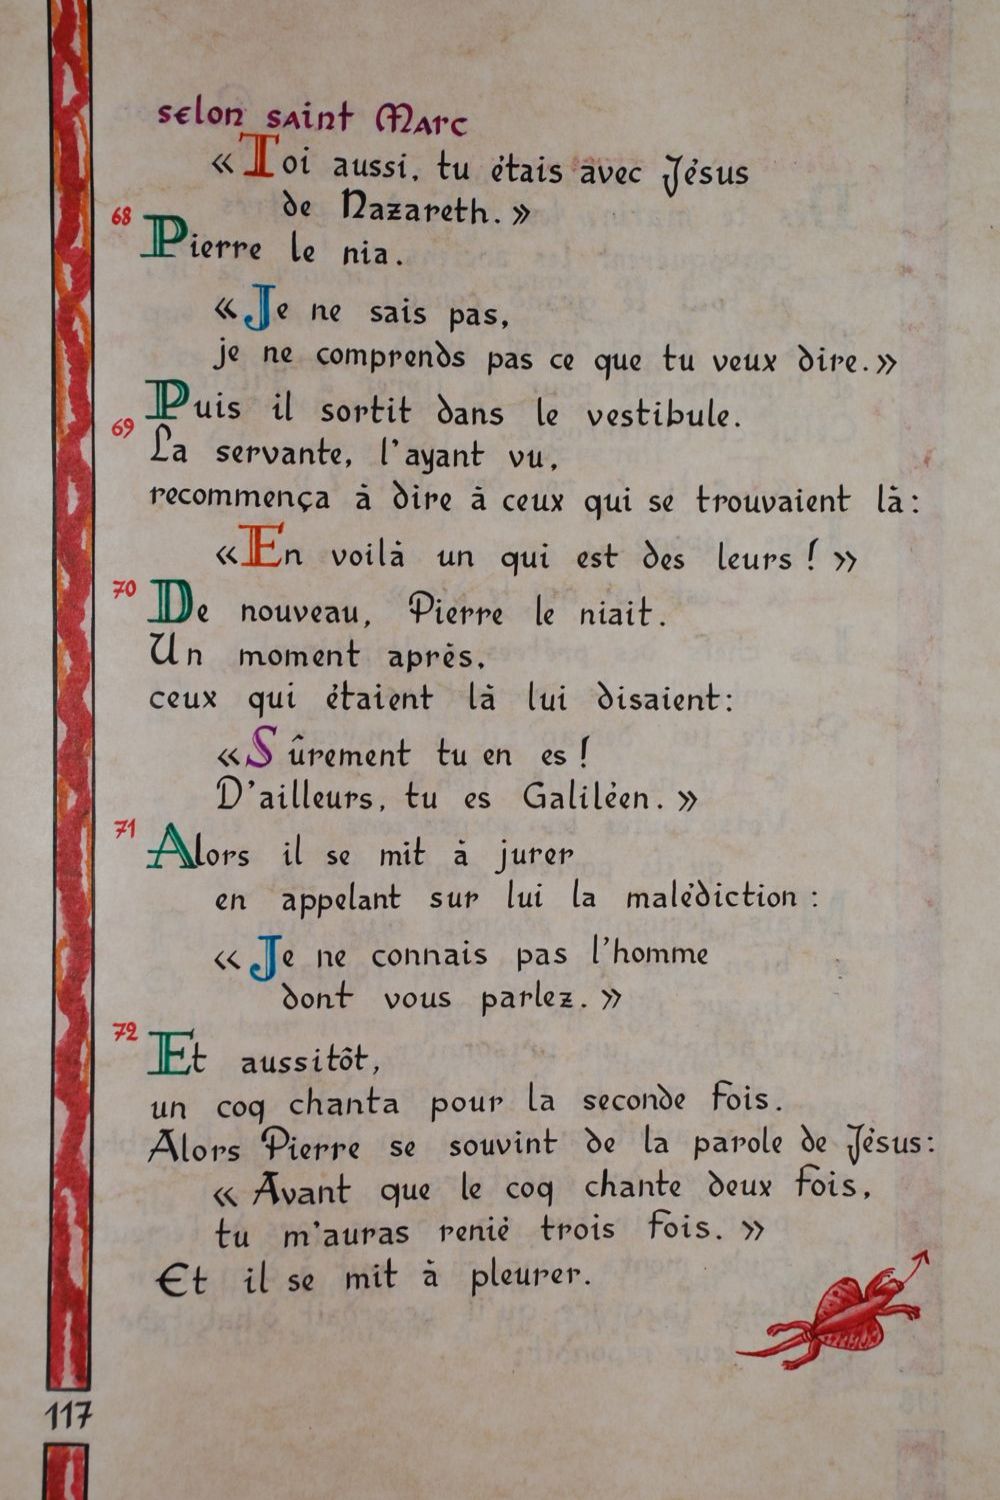 selon saint Marc
« Toi aussi, tu étais avec Jésus
de Nazareth. »
68
Pierre le nia.
« Je ne sais pas,
je ne comprends pas ce que tu veux dire. »
Puis il sortit dans le vestibule.
69
La servante, l'ayant vu,
recommença à dire à ceux qui se trouvaient là :
« En voilà un qui est des leurs ! »
70
De nouveau, Pierre le niait.
Un moment après,
ceux qui étaient là lui disaient :
« Sûrement tu en es !
D'ailleurs, tu es Galiléen. »
71
Alors il se mit à jurer
en appelant sur lui la malédiction :
« Je ne connais pas l'homme
dont vous parlez. »
72
Et aussitôt,
un coq chanta pour la seconde fois.
Alors Pierre se souvint de la parole de Jésus :
« Avant que le coq chante deux fois,
tu m'auras renié trois fois. »
Et il se mit à pleurer.
117